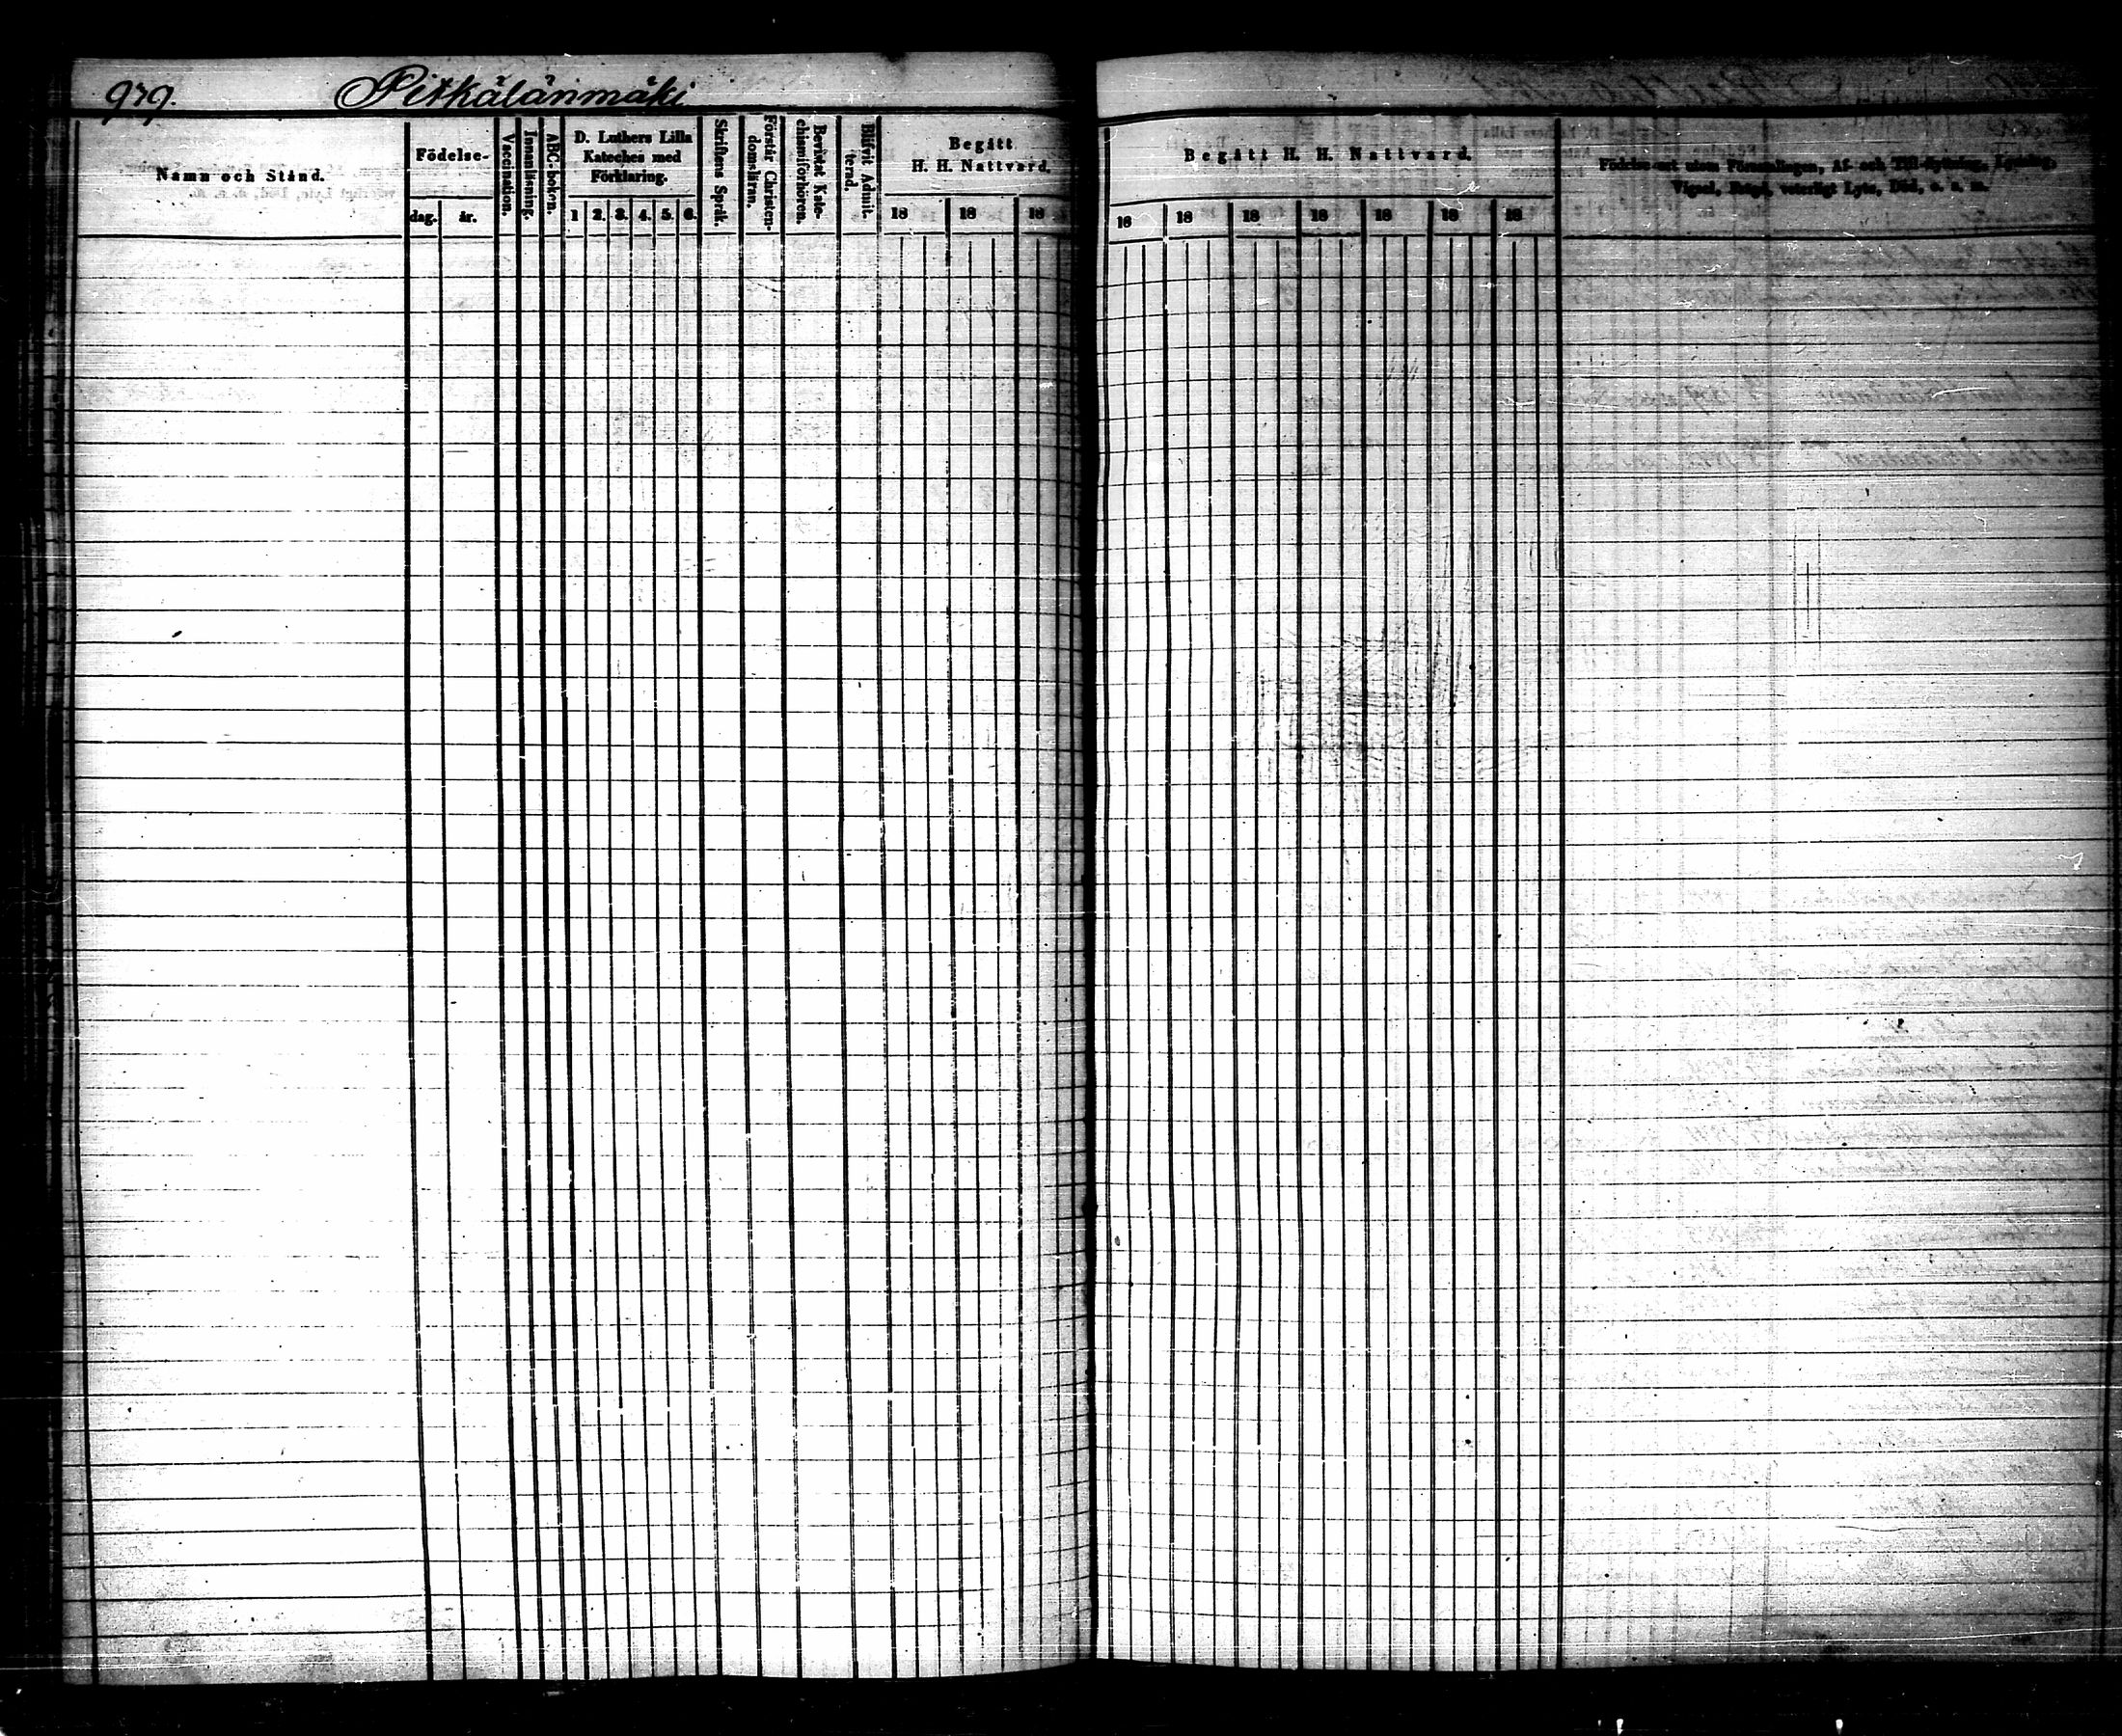 979. Pitkälänmäki
Namn och Stånd.
Födelse-
dag. år.
Vaccination.
Innanläsning.
ABC-boken.
D. Luthers Lilla
Kateches med
Förklaring.
1 2. 3. 4. 5. 6.
Skriftens Språk.
Förstår Christen-
domskran.
Bevistat Kate-
chismiförhören.
Blifvit Admit-
terad.
Begått
H. H. Nattvard.
18 18 18
Begått H. H. Nattvard.
18 18 18 18 18 18 18
Födelse-ort utom Församlingen, Af- och Till-flyttning, Lysning,
Vigsel, Frägd, veterligt Lyte, Död, o. s. m.